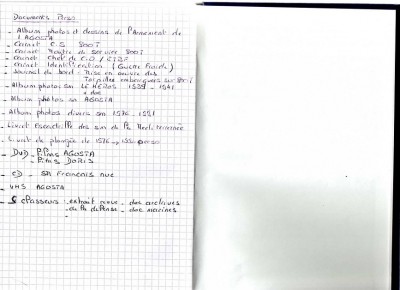 Documents Perso
- Album photos et dessins de l'Armement de L'AGOSTA
- Carnet C.S
- Carnet Maître de Service
- Carnet Chef de C.O / CIDF
- Carnet Identification (Guerre Froide)
- Journal de bord : Mise en œuvre des
Torpilles embarquées sur
- Album photos sm LE HEROS 1939 - 1941
+ doc
- Album photos sm AGOSTA
- Album photos divers sm 1976 - 1991
- Livret des sm de la Mediterranée
- Livret de plongée de 1976
- DVD - Films AGOSTA
- Films DORIS
- CD - SM Francais nuc
- VHS AGOSTA
- classeurs : extrait revue - des archives
- de la défense - doc marines